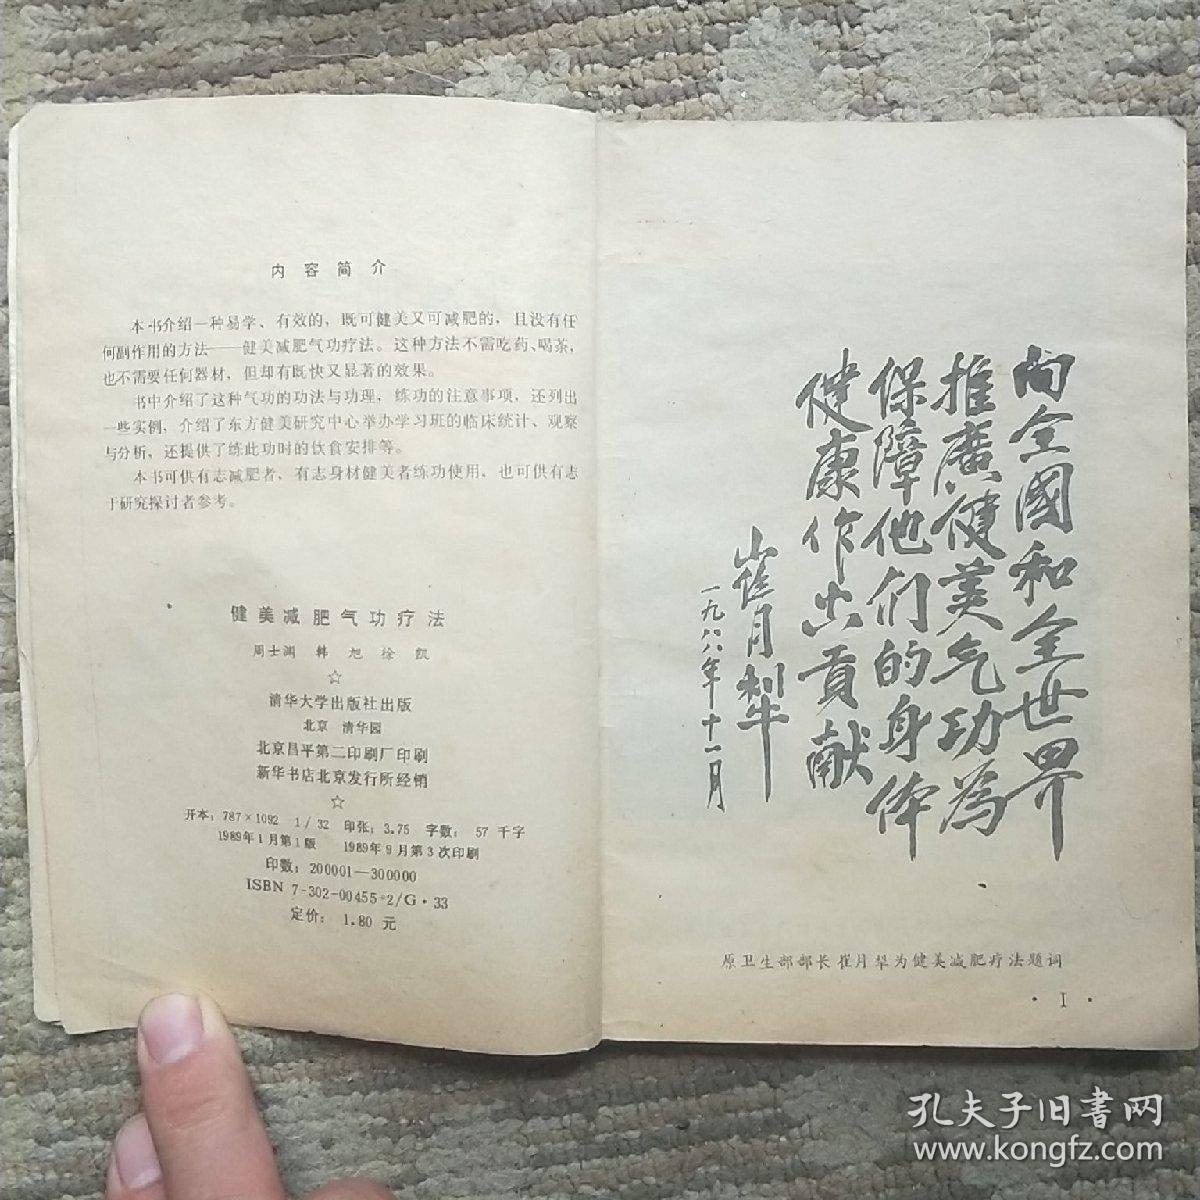 内容简介
本书介绍一种易学、有效的，既可健美又可减肥的，且没有任
何副作用的方法——健美减肥气功疗法。这种方法不需吃药、喝茶，
也不需要任何器材，但却有既快又显著的效果。
书中介绍了这种气功的功法与功理，练功的注意事项，还列出
一些实例，介绍了东方健美研究中心举办学习班的临床统计、观察
与分析，还提供了练此功时的饮食安排等。
本书可供有志减肥者，有志身材健美者练功使用，也可供有志
于研究探讨者参考。
健美减肥气功疗法
周士渊 韩旭 徐凯
☆
清华大学出版社出版
北京 清华园
北京昌平第二印刷厂印刷
新华书店北京发行所经销
☆
开本：787×1092 1/32 印张：3.75 字数：57千字
1989年1月第1版 1989年9月第3次印刷
印数：200001—300000
ISBN 7-302-00455-2/G·33
定价：1.80元
向全國和全世界
推廣健美气功為
保障他们的身体
健康作出貢献
崔月犂
一九八八年十一月
原卫生部部长崔月犁为健美减肥疗法题词
·I·
孔夫子旧書网
www.kongfz.com